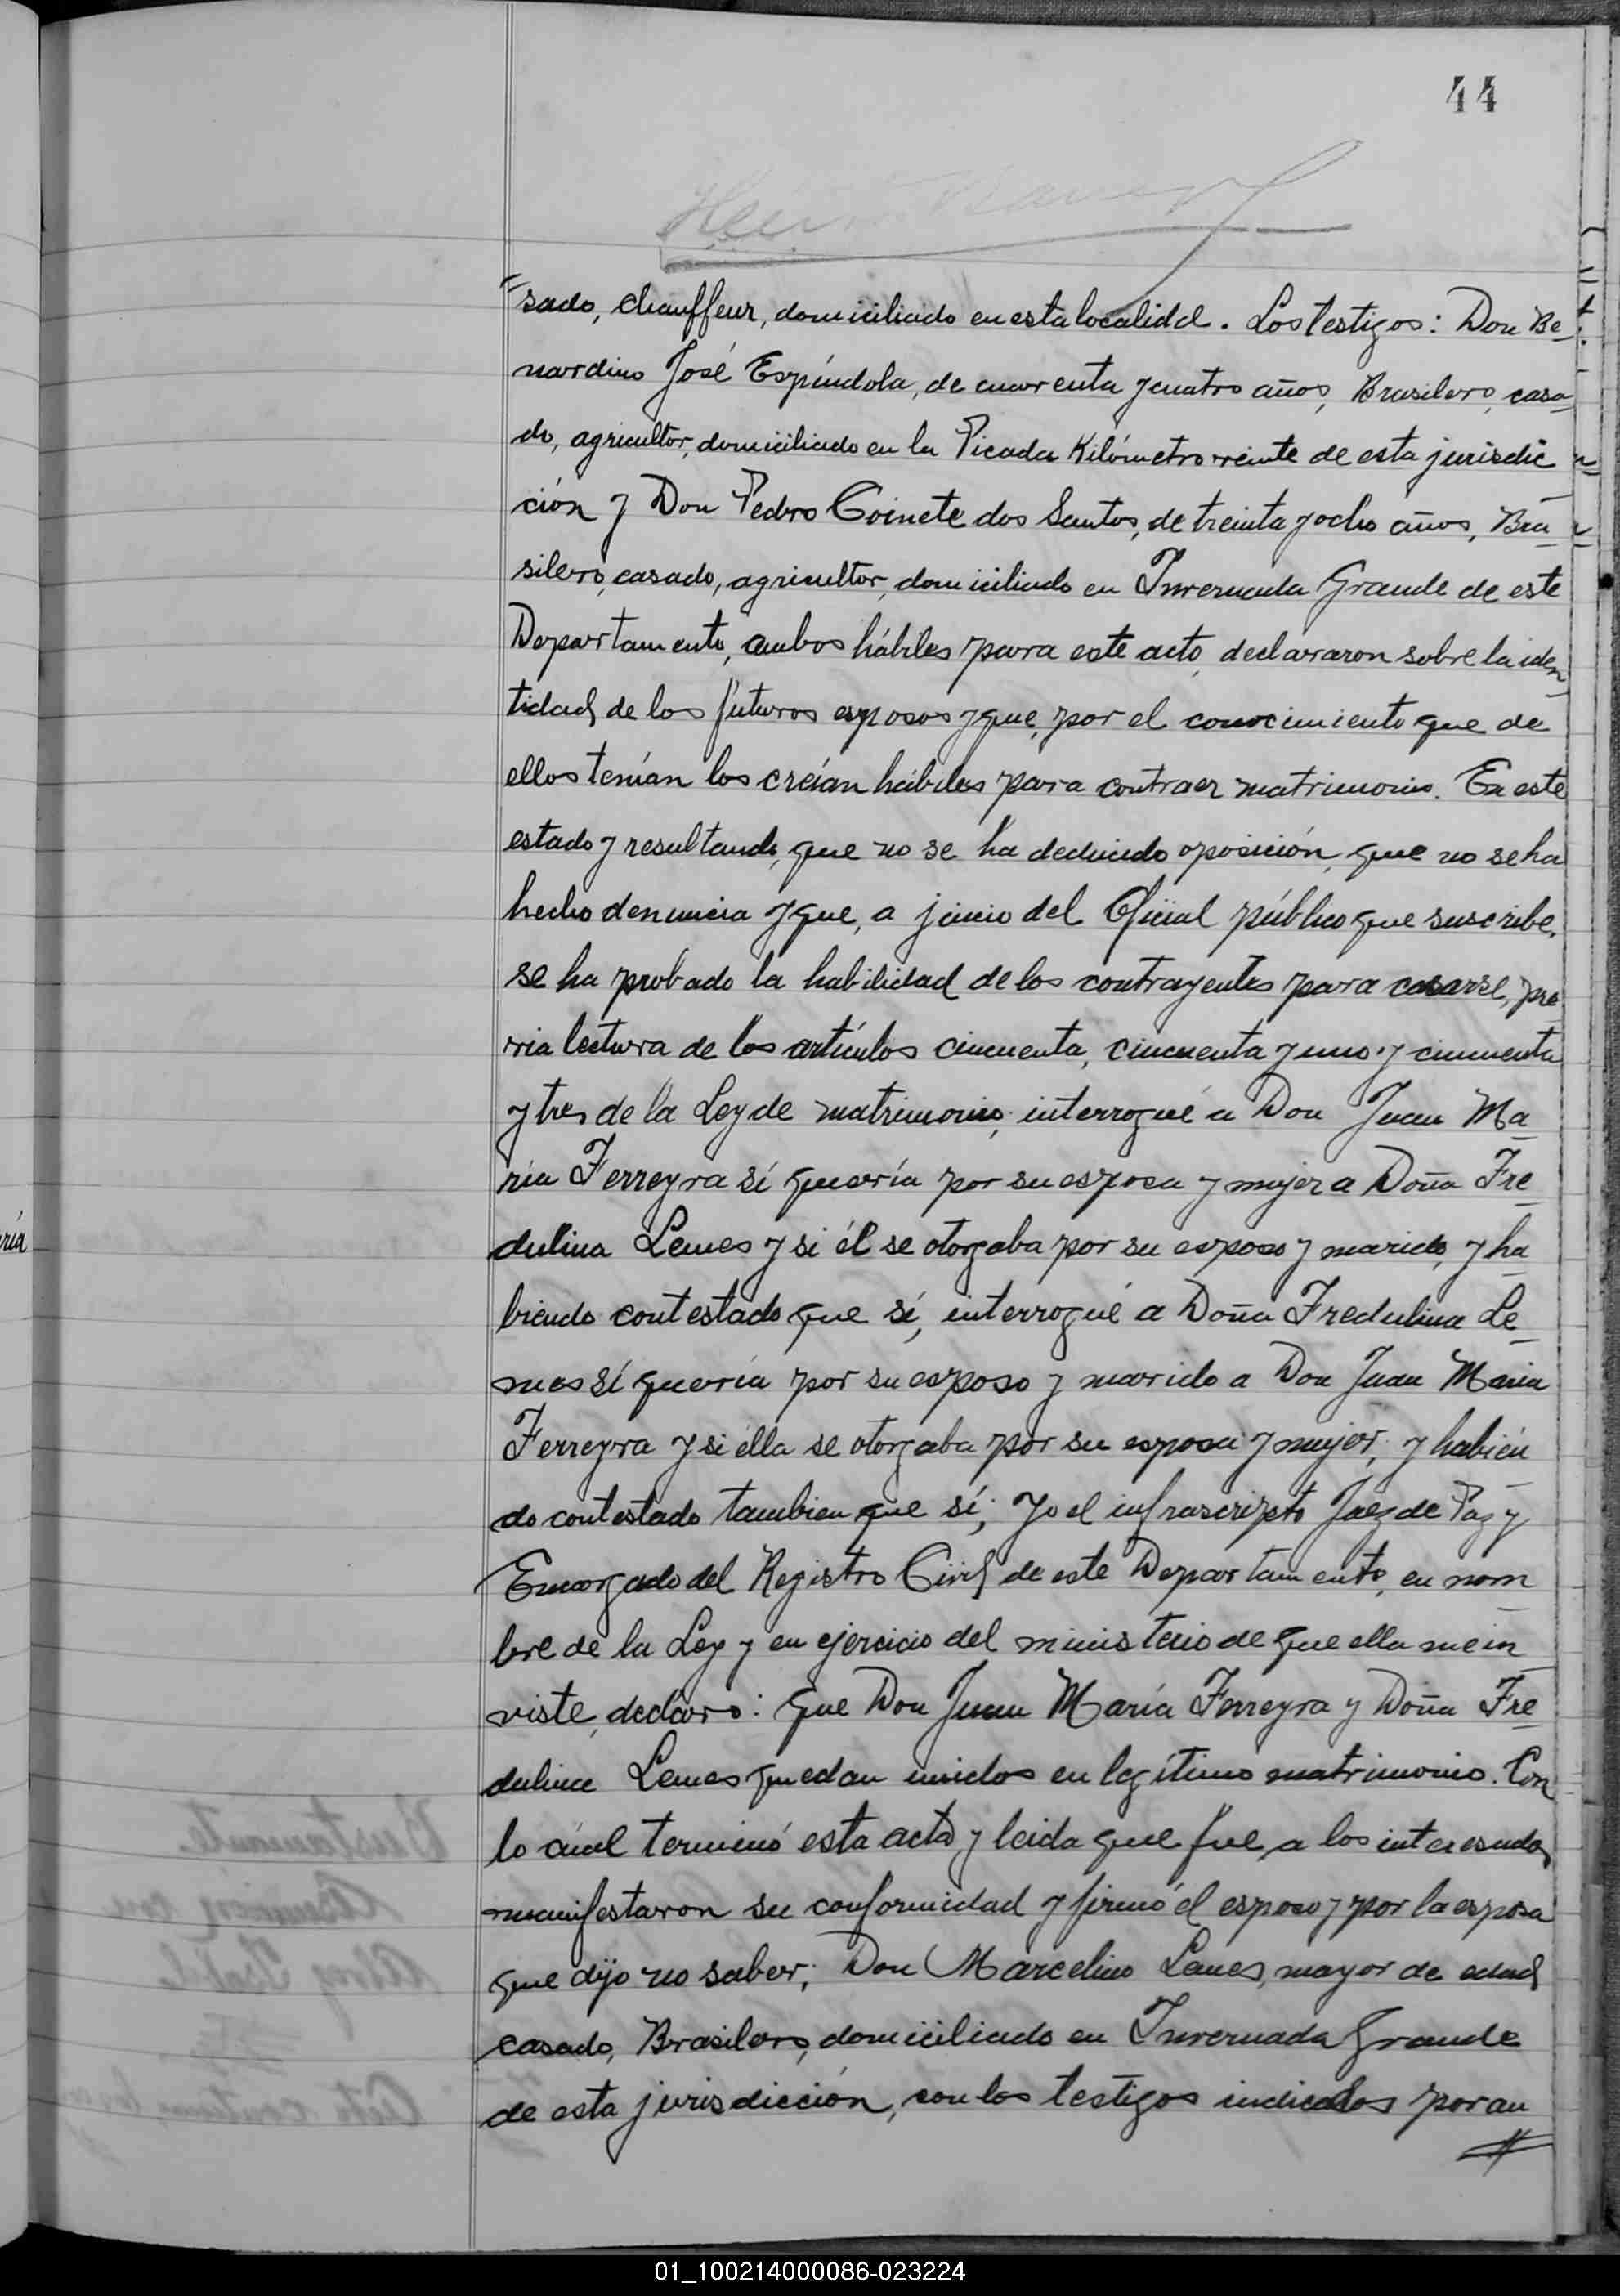 44
sado, chauffeur, domiciliado en esta localidd. Los testigos: Don Be_
nardino José Espíndola, de cuarenta y cuatro años, Brasilero, casa_
do, agricultor, domiciliado en la Picada Kilómetro veinte de esta jurisdic_
ción y Don Pedro Coinete dos Santos, de treinta y ocho años, Bra_
silero, casado, agricultor, domiciliado en Invernada Grande de este
Departamento, ambos hábiles para este acto, declararon sobre la iden_
tidad de los futuros esposos y que, por el conocimiento que de
ellos tenían los creían hábiles para contraer matrimonio. En este
estado y resultando, que no se ha deducido oposición, que no se ha
hecho denuncia y que, a juicio del Oficial público que suscribe,
se ha probado la habilidad de los contrayentes para casarse, pre_
via lectura de los artículos cincuenta, cincuenta y uno y cincuenta
y tres de la Ley de matrimonio, interrogué a Don Juan Ma_
ría Ferreyra sí quería por su esposa y mujer a Doña Fre_
dulina Lemes y si él se otorgaba por su esposo y marido, y ha_
biendo contestado que sí, interrogué a Doña Fredulina Le_
mes sí quería por su esposo y marido a Don Juan Maria
Ferreyra y si ella se otorgaba por su esposa y mujer, y habién_
do contestado tambien que sí; Yo el infrascripto Juez de Paz y
Encargado del Registro Civil de este Departamento, en nom_
bre de la Ley y en ejercicio del ministerio de que ella me in_
viste, declaro: que Don Juan María Ferreyra y Doña Fre_
dulina Lemes quedan unidos en legítimo matrimonio. Con
lo cuál terminó esta acta y leida que fue a los interesados,
manifestaron su conformidad y firmó el esposo y por la esposa
que dijo no saber, Don Marcelino Lemes, mayor de edad,
casado, Brasilero, domiciliado en Invernada Grande
de esta jurisdicción, con los testigos indicados por an
ría
01_100214000086-023224